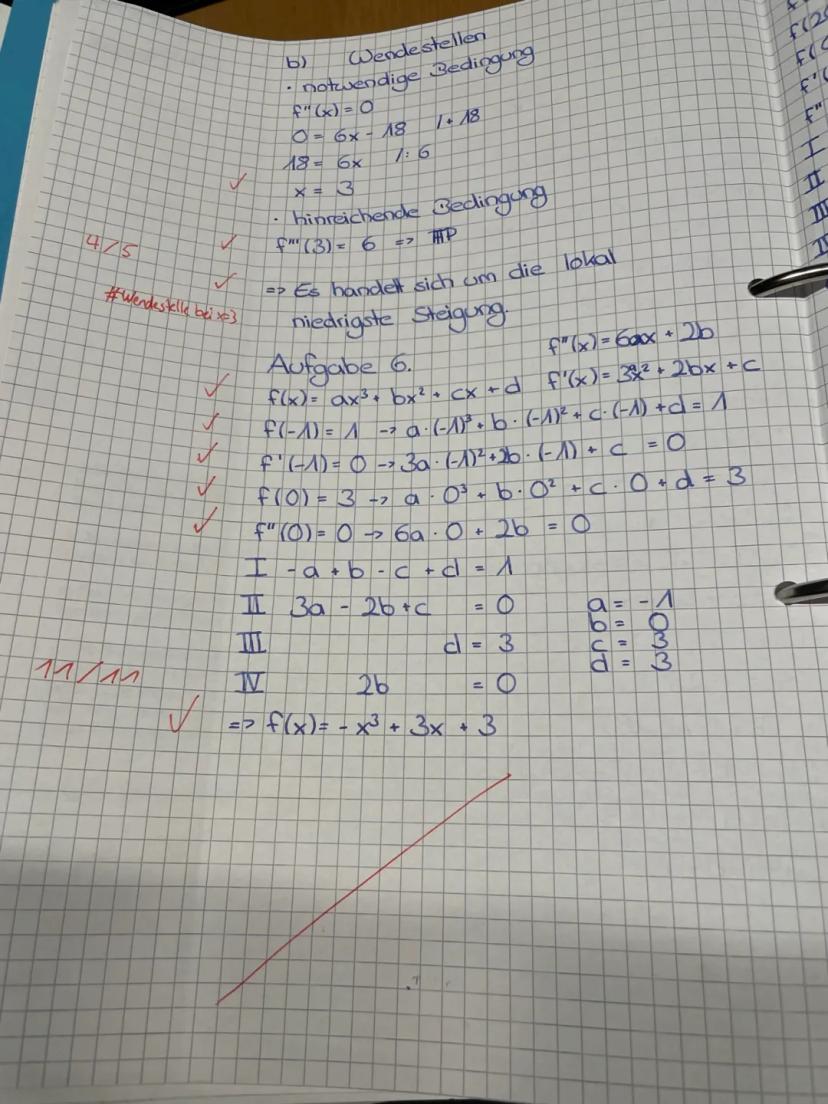 b) Wendestellen
· notwendige Bedingung
f''(x) = 0
0 = 6x - 18 /+ 18
18 = 6x /: 6
✓ x = 3
· hinreichende Bedingung
4/5 ✓ f'''(3) = 6 =>
✓ => Es handelt sich um die lokal
#Wendestelle bei x=3 niedrigste Steigung.
f''(x) = 6ax + 2b
Aufgabe 6.
✓ f(x) = ax³ + bx² + cx + d f'(x) = 3ax² + 2bx + c
✓ f(-1) = 1 -> a·(-1)³ + b·(-1)² + c·(-1) + d = 1
✓ f'(-1) = 0 -> 3a·(-1)² + 2b·(-1) + c = 0
✓ f(0) = 3 -> a·0³ + b·0² + c·0 + d = 3
✓ f''(0) = 0 -> 6a·0 + 2b = 0
I -a + b - c + d = 1
II 3a - 2b + c = 0 a = -1
b = 0
III d = 3 c = 3
d = 3
11/11 IV 2b = 0
✓ => f(x) = -x³ + 3x + 3
f(
f'(
f''
I
II
III